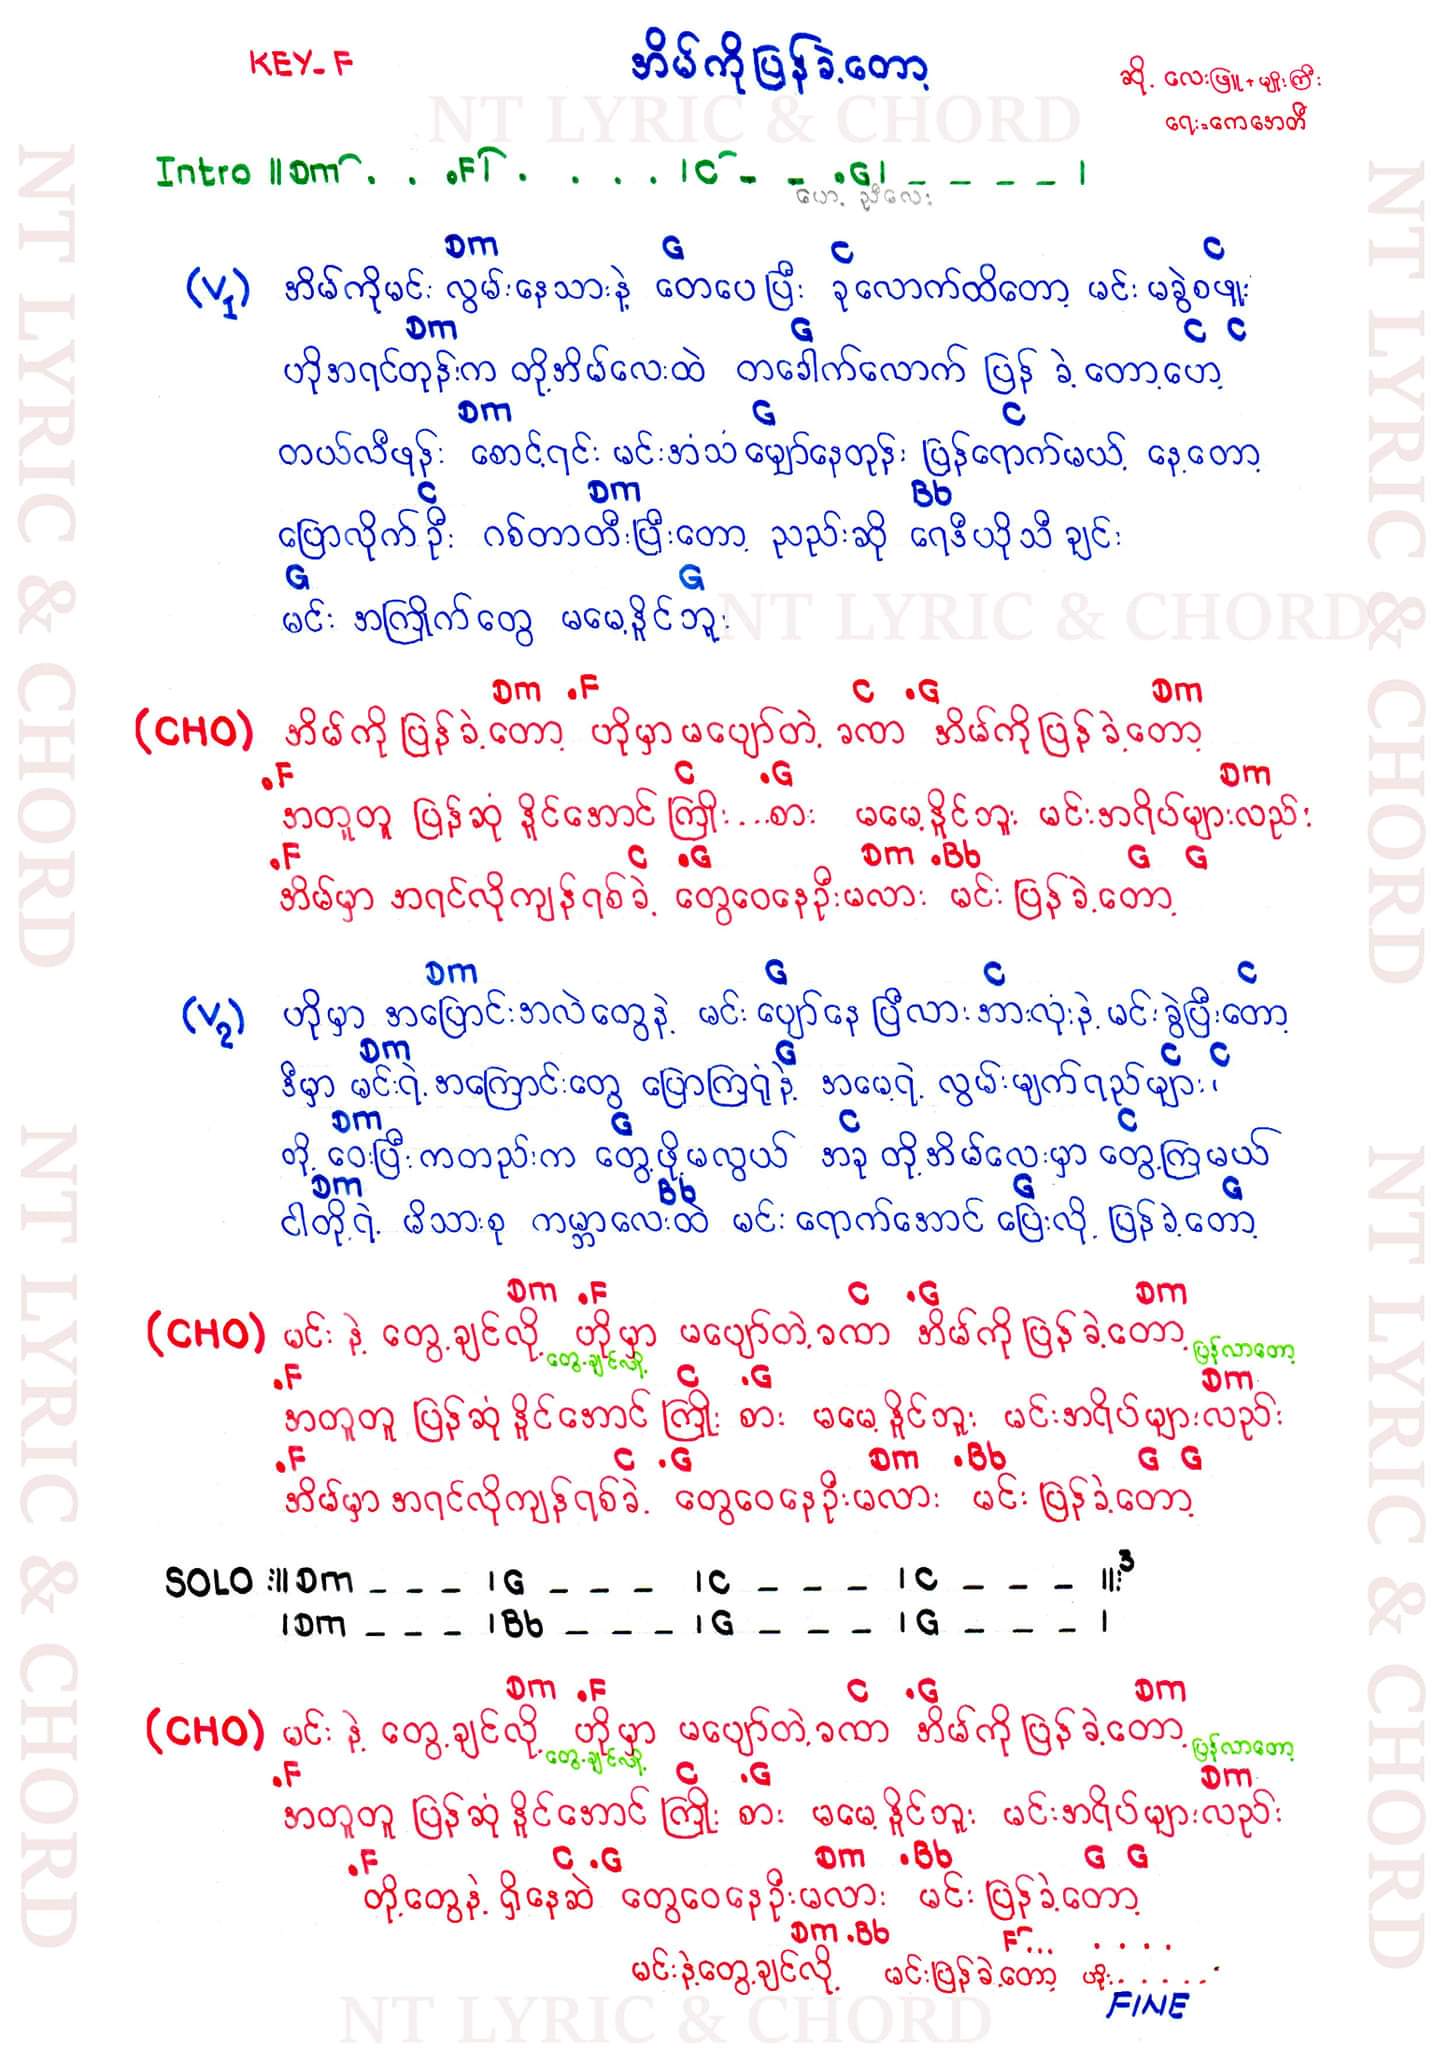 KEY-F
အိမ်ကိုပြန်ခဲ့တော့
ဆို. လေးဖြူ + မျိုးကြီး
ရေး-ကေအေတီ
NT LYRIC & CHORD
Intro ||Dm . . .F . . . . |C - - .G| - - - - |
ဟေ့ ညီလေး
Dm G C C
(V1) အိမ်ကိုမင်း လွမ်းနေသားနဲ့ တေပေပြီး ခုလောက်ထိတော့ မင်းမခွဲစဖူး
Dm G C C
ဟိုအရင်တုန်းက တို့အိမ်လေးထဲ တခေါက်လောက် ပြန်ခဲ့တော့ဟေ့
Dm G C
တယ်လီဖုန်း စောင့်ရင်း မင်းအသံမျှော်နေတုန်း ပြန်ရောက်မယ့် နေ့တော့
C Dm Bb
ပြောလိုက်ဦး ဂစ်တာတီးပြီးတော့ ညည်းဆို ရေဒီယိုသီချင်း
G G
မင်း အကြိုက်တွေ မမေ့နိူင်ဘူး
NT LYRIC & CHORD
Dm .F C .G Dm
(CHO) အိမ်ကိုပြန်ခဲ့တော့ ဟိုမှာမပျော်တဲ့ခဏ အိမ်ကိုပြန်ခဲ့တော့
.F C .G Dm
အတူတူ ပြန်ဆုံနိူင်အောင် ကြိုး...စား မမေ့နိူင်ဘူး မင်းအရိပ်များလည်း
.F C .G Dm .Bb G G
အိမ်မှာ အရင်လိုကျန်ရစ်ခဲ့ တွေဝေနေဦးမလား မင်းပြန်ခဲ့တော့
Dm G C C
(V2) ဟိုမှာ အပြောင်းအလဲတွေနဲ့ မင်းပျော်နေပြီလား အားလုံးနဲ့ မင်းခွဲပြီးတော့
Dm G C C
ဒီမှာ မင်းရဲ့အကြောင်းတွေ ပြောကြရုံနဲ့ အမေ့ရဲ့ လွမ်းမျက်ရည်များ၊
Dm G C C
တို့ ဝေးပြီးကတည်းက တွေ့ဖို့မလွယ် အခု တို့အိမ်လေးမှာ တွေ့ကြမယ်
Dm Bb G G
ငါတို့ရဲ့ မိသားစု ကမ္ဘာလေးထဲ မင်းရောက်အောင် ပြေးလို့ ပြန်ခဲ့တော့
Dm .F C .G Dm
(CHO) မင်းနဲ့ တွေ့ချင်လို့ ဟိုမှာ မပျော်တဲ့ခဏ အိမ်ကိုပြန်ခဲ့တော့
တွေ့ချင်လို့ ပြန်လာတော့
.F C .G Dm
အတူတူ ပြန်ဆုံနိူင်အောင် ကြိုးစား မမေ့နိူင်ဘူး မင်းအရိပ်များလည်း
.F C .G Dm .Bb G G
အိမ်မှာ အရင်လိုကျန်ရစ်ခဲ့ တွေဝေနေဦးမလား မင်းပြန်ခဲ့တော့
SOLO :||Dm - - - |G - - - |C - - - |C - - - ||:3
|Dm - - - |Bb - - - |G - - - |G - - - |
Dm .F C .G Dm
(CHO) မင်းနဲ့ တွေ့ချင်လို့ ဟိုမှာ မပျော်တဲ့ခဏ အိမ်ကိုပြန်ခဲ့တော့
တွေ့ချင်လို့ ပြန်လာတော့
.F C .G Dm
အတူတူ ပြန်ဆုံနိူင်အောင် ကြိုးစား မမေ့နိူင်ဘူး မင်းအရိပ်များလည်း
.F C .G Dm .Bb G G
တို့တွေနဲ့ ရှိနေဆဲ တွေဝေနေဦးမလား မင်းပြန်ခဲ့တော့
Dm .Bb F... . . . .
မင်းနဲ့တွေ့ချင်လို့ မင်းပြန်ခဲ့တော့ ဟိုး......
FINE
NT LYRIC & CHORD
NT LYRIC & CHORD
NT LYRIC & CHORD
NT LYRIC & CHORD
NT LYRIC & CHORD